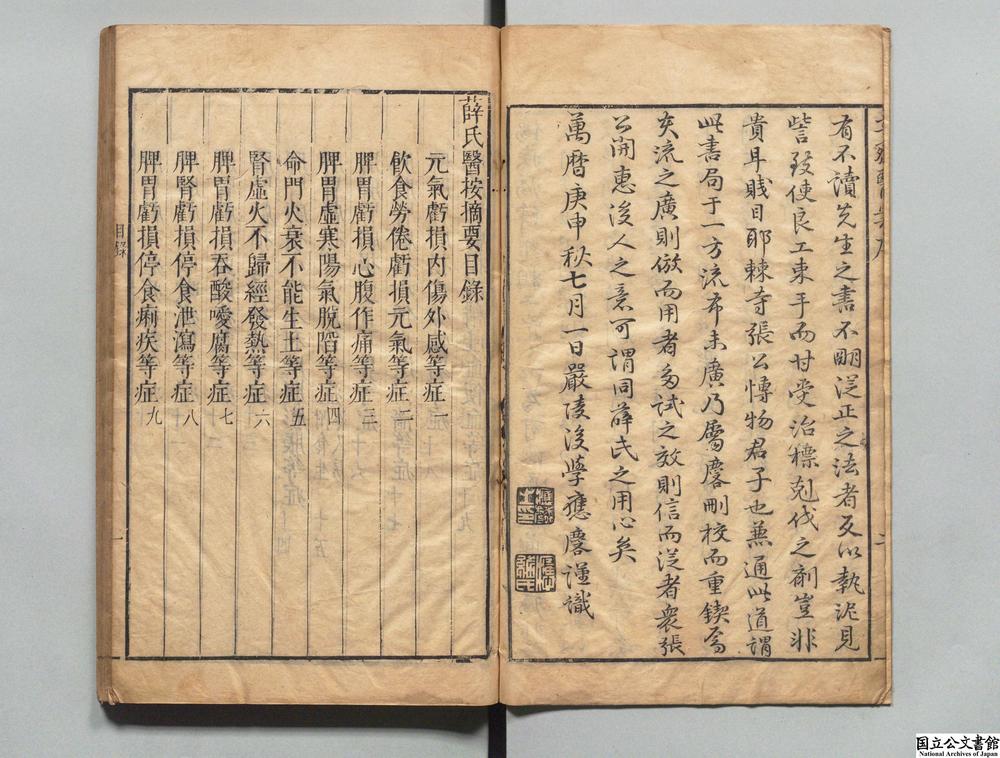 有不讀先生之書不明從正之法者反以執泥見
訾致使良工束手而甘受治標剋伐之劑豈非
貴耳賤目耶棘寺張公博物君子也兼通此道謂
此書局于一方流布未廣乃屬麐刪校而重鍥焉
矣流之廣則倣而用者多試之效則信而從者衆張
公開惠後人之意可謂同薛氏之用心矣
萬曆庚申秋七月一日嚴陵後學應麐謹識
薛氏醫按摘要目錄
元氣虧損內傷外感等症一
飲食勞倦虧損元氣等症二
脾胃虧損心腹作痛等症三
脾胃虛寒陽氣脫陷等症四
命門火衰不能生土等症五
腎虛火不歸經發熱等症六
脾胃虧損吞酸噯腐等症七
脾腎虧損停食泄瀉等症八
脾胃虧損停食痢疾等症九
目錄
一
国立公文書館
National Archives of Japan